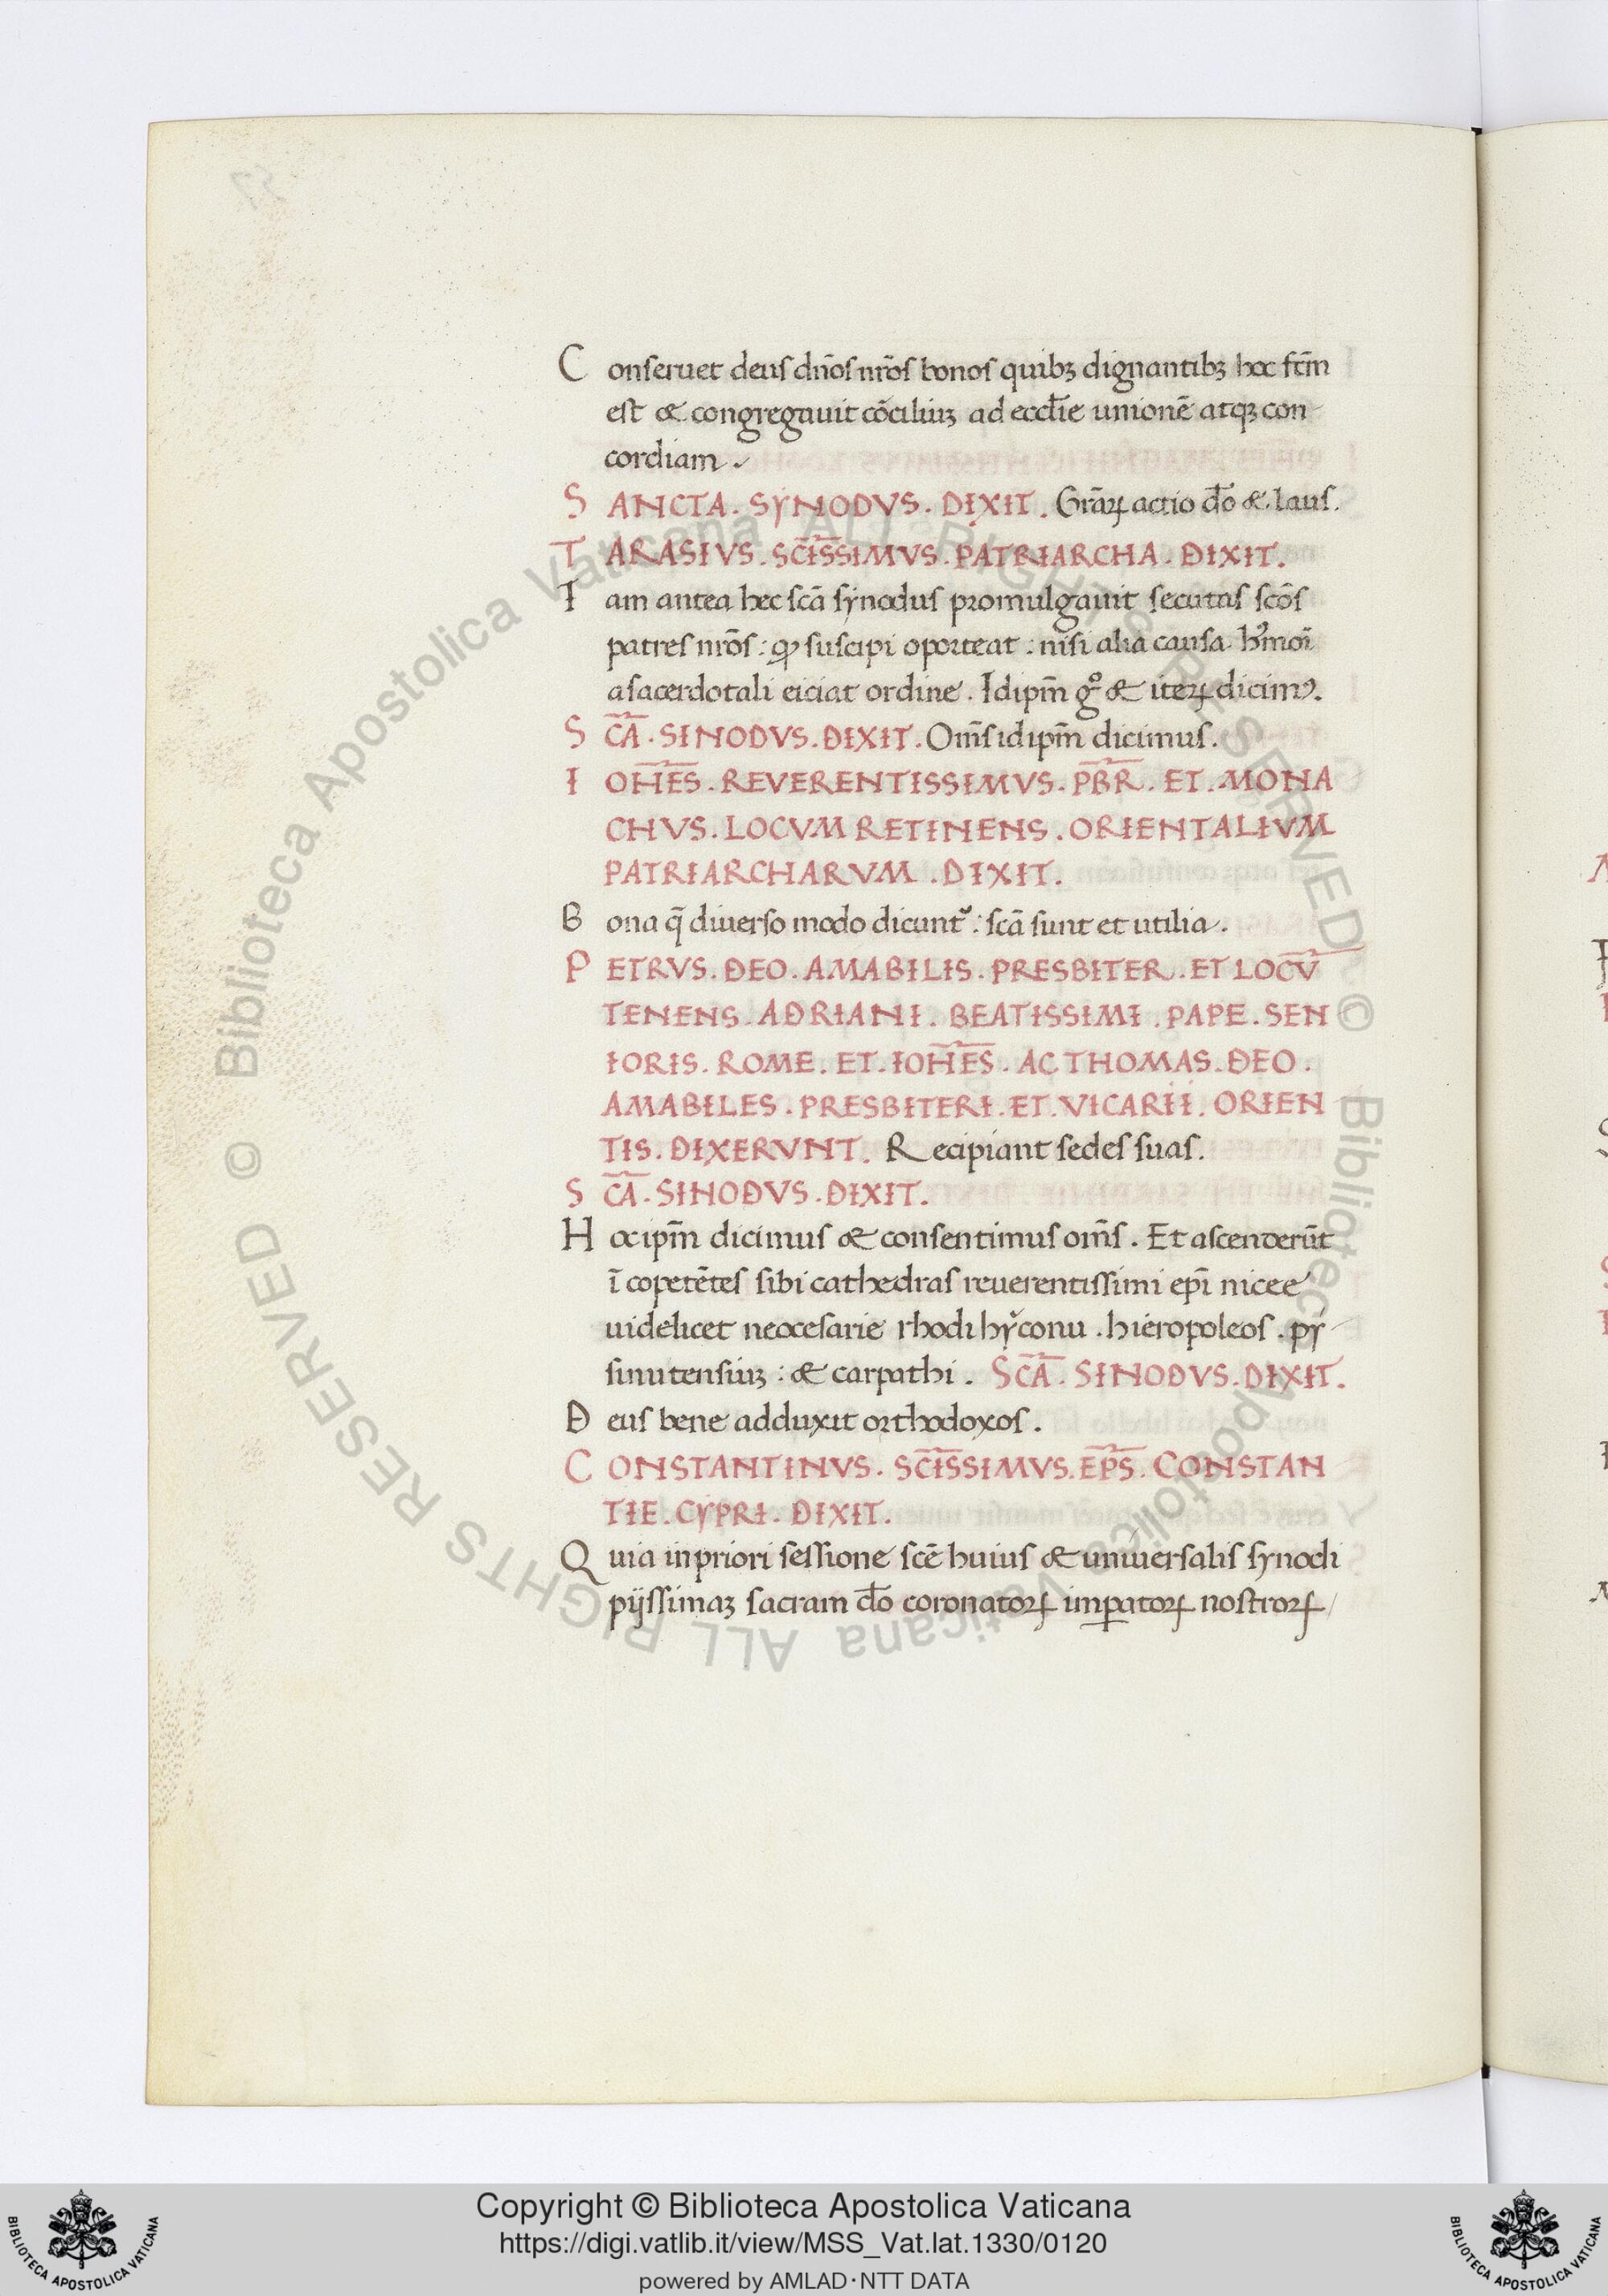 Conseruet deus dn̄os nr̄os bonos quibꝫ dignantibꝫ hoc fc̄m
est & congregauit cōciliuꝫ ad eccl̄ie unionē atqꝫ con
cordiam.
SANCTA. SYNODVS. DIXIT. Gr̄aꝝ actio d̄o & laus.
TARASIVS. SC̄ISSIMVS. PATRIARCHA. DIXIT.
Iam antea hec scā synodus promulgauit secutas scōs
patres nr̄os: ꝙ suscipi oporteat: nisi alia causa hꝰmoi
a sacerdotali eiciat ordine. Idipm̄ gͦ & iteꝝ dicimꝰ.
SC̄A. SINODVS. DIXIT. Om̄s idipm̄ dicimus.
IOH̄ES. REVERENTISSIMVS. PB̄R. ET. MONA
CHVS. LOCVM RETINENS. ORIENTALIVM
PATRIARCHARVM. DIXIT.
Bona q̄ diuerso modo dicunt᷑: scā sunt et utilia.
PETRVS. DEO. AMABILIS. PRESBITER. ET LOCV̄
TENENS. ADRIANI. BEATISSIMI. PAPE. SEN
IORIS. ROME. ET. IOH̄ES. AC THOMAS. DEO.
AMABILES. PRESBITERI. ET. VICARII. ORIEN
TIS. DIXERVNT. Recipiant sedes suas.
SC̄A. SINODVS. DIXIT.
Hoc ipm̄ dicimus & consentimus om̄s. Et ascenderūt
ī copetētes sibi cathedras reuerentissimi ep̄i nicee
uidelicet neocesarie rhodi hyconu. hieropoleos. py
sinutensiuꝫ: & carpathi. SC̄A. SINODVS. DIXIT.
Deus bene adduxit orthodoxos.
CONSTANTINVS. SC̄ISSIMVS. EP̄S. CONSTAN
TIE. CYPRI. DIXIT.
Quia in priori sessione scē huius & uniuersalis synodi
pijssimaꝫ sacram d̄o coronatoꝝ imꝑatoꝝ nostroꝝ
© Biblioteca Apostolica Vaticana ALL RIGHTS RESERVED © Biblioteca Apostolica Vaticana ALL RIGHTS RESERVED
Copyright © Biblioteca Apostolica Vaticana
https://digi.vatlib.it/view/MSS_Vat.lat.1330/0120
powered by AMLAD·NTT DATA
BIBLIOTECA APOSTOLICA VATICANA
BIBLIOTECA APOSTOLICA VATICANA